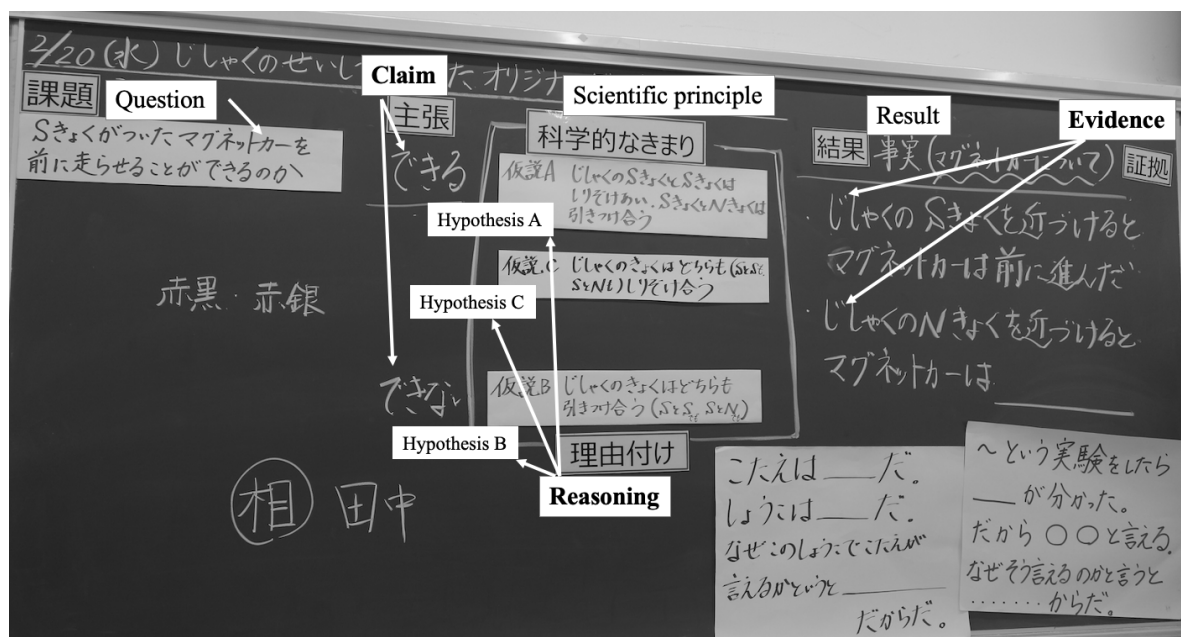 2/20(水)じしゃくのせいし
た オリジナ
課題
Question
Sきょくがついたマグネットカーを
前に走らせることができるのか
Claim
主張
できる
できな
赤黒・赤銀
相 田中
Scientific principle
科学的なきまり
仮説A じしゃくのSきょくとSきょくは
しりぞけあい、SきょくとNきょくは
引きつけ合う
Hypothesis A
仮説.C じしゃくのきょくはどちらも(SとSも、
SとNも)しりぞけ合う
Hypothesis C
仮説B じしゃくのきょくはどちらも
引きつけ合う(SとSも、SとNも)
Hypothesis B
理由付け
Reasoning
Result
Evidence
結果 事実(マグネットカーについて) 証拠
・じしゃくのSきょくを近づけると
マグネットカーは前に進んだ
・じしゃくのNきょくを近づけると
マグネットカーは
こたえは___だ。
しょうこは___だ。
なぜこのしょうこでこたえが
言えるかというと______
だからだ。
～という実験をしたら
___が分かった。
だから○○と言える。
なぜそう言えるのかと言うと
・・・・・・・からだ。